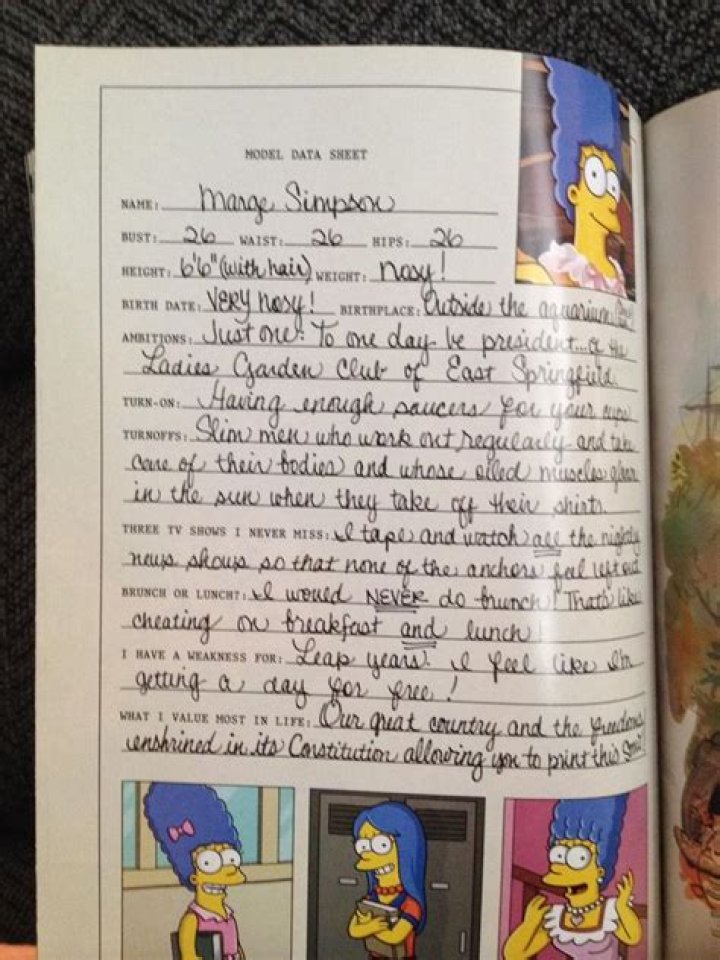 MODEL DATA SHEET
NAME: Marge Simpson
BUST: 26 WAIST: 26 HIPS: 26
HEIGHT: 6'6" (with hair) WEIGHT: nosy!
BIRTH DATE: VERY nosy! BIRTHPLACE: Outside the aquarium
AMBITIONS: Just one: To one day be president...of the
Ladies Garden Club of East Springfield.
TURN-ON: Having enough saucers for your cups
TURNOFFS: Slim men who work out regularly and take
care of their bodies and whose oiled muscles glean
in the sun when they take off their shirts.
THREE TV SHOWS I NEVER MISS: I tape and watch all the nightly
news shows so that none of the anchors feel left out
BRUNCH OR LUNCH?: I would NEVER do brunch! That's like
cheating on breakfast and lunch!
I HAVE A WEAKNESS FOR: Leap years. I feel like I'm
getting a day for free!
WHAT I VALUE MOST IN LIFE: Our great country and the freedoms
enshrined in its Constitution allowing you to print this